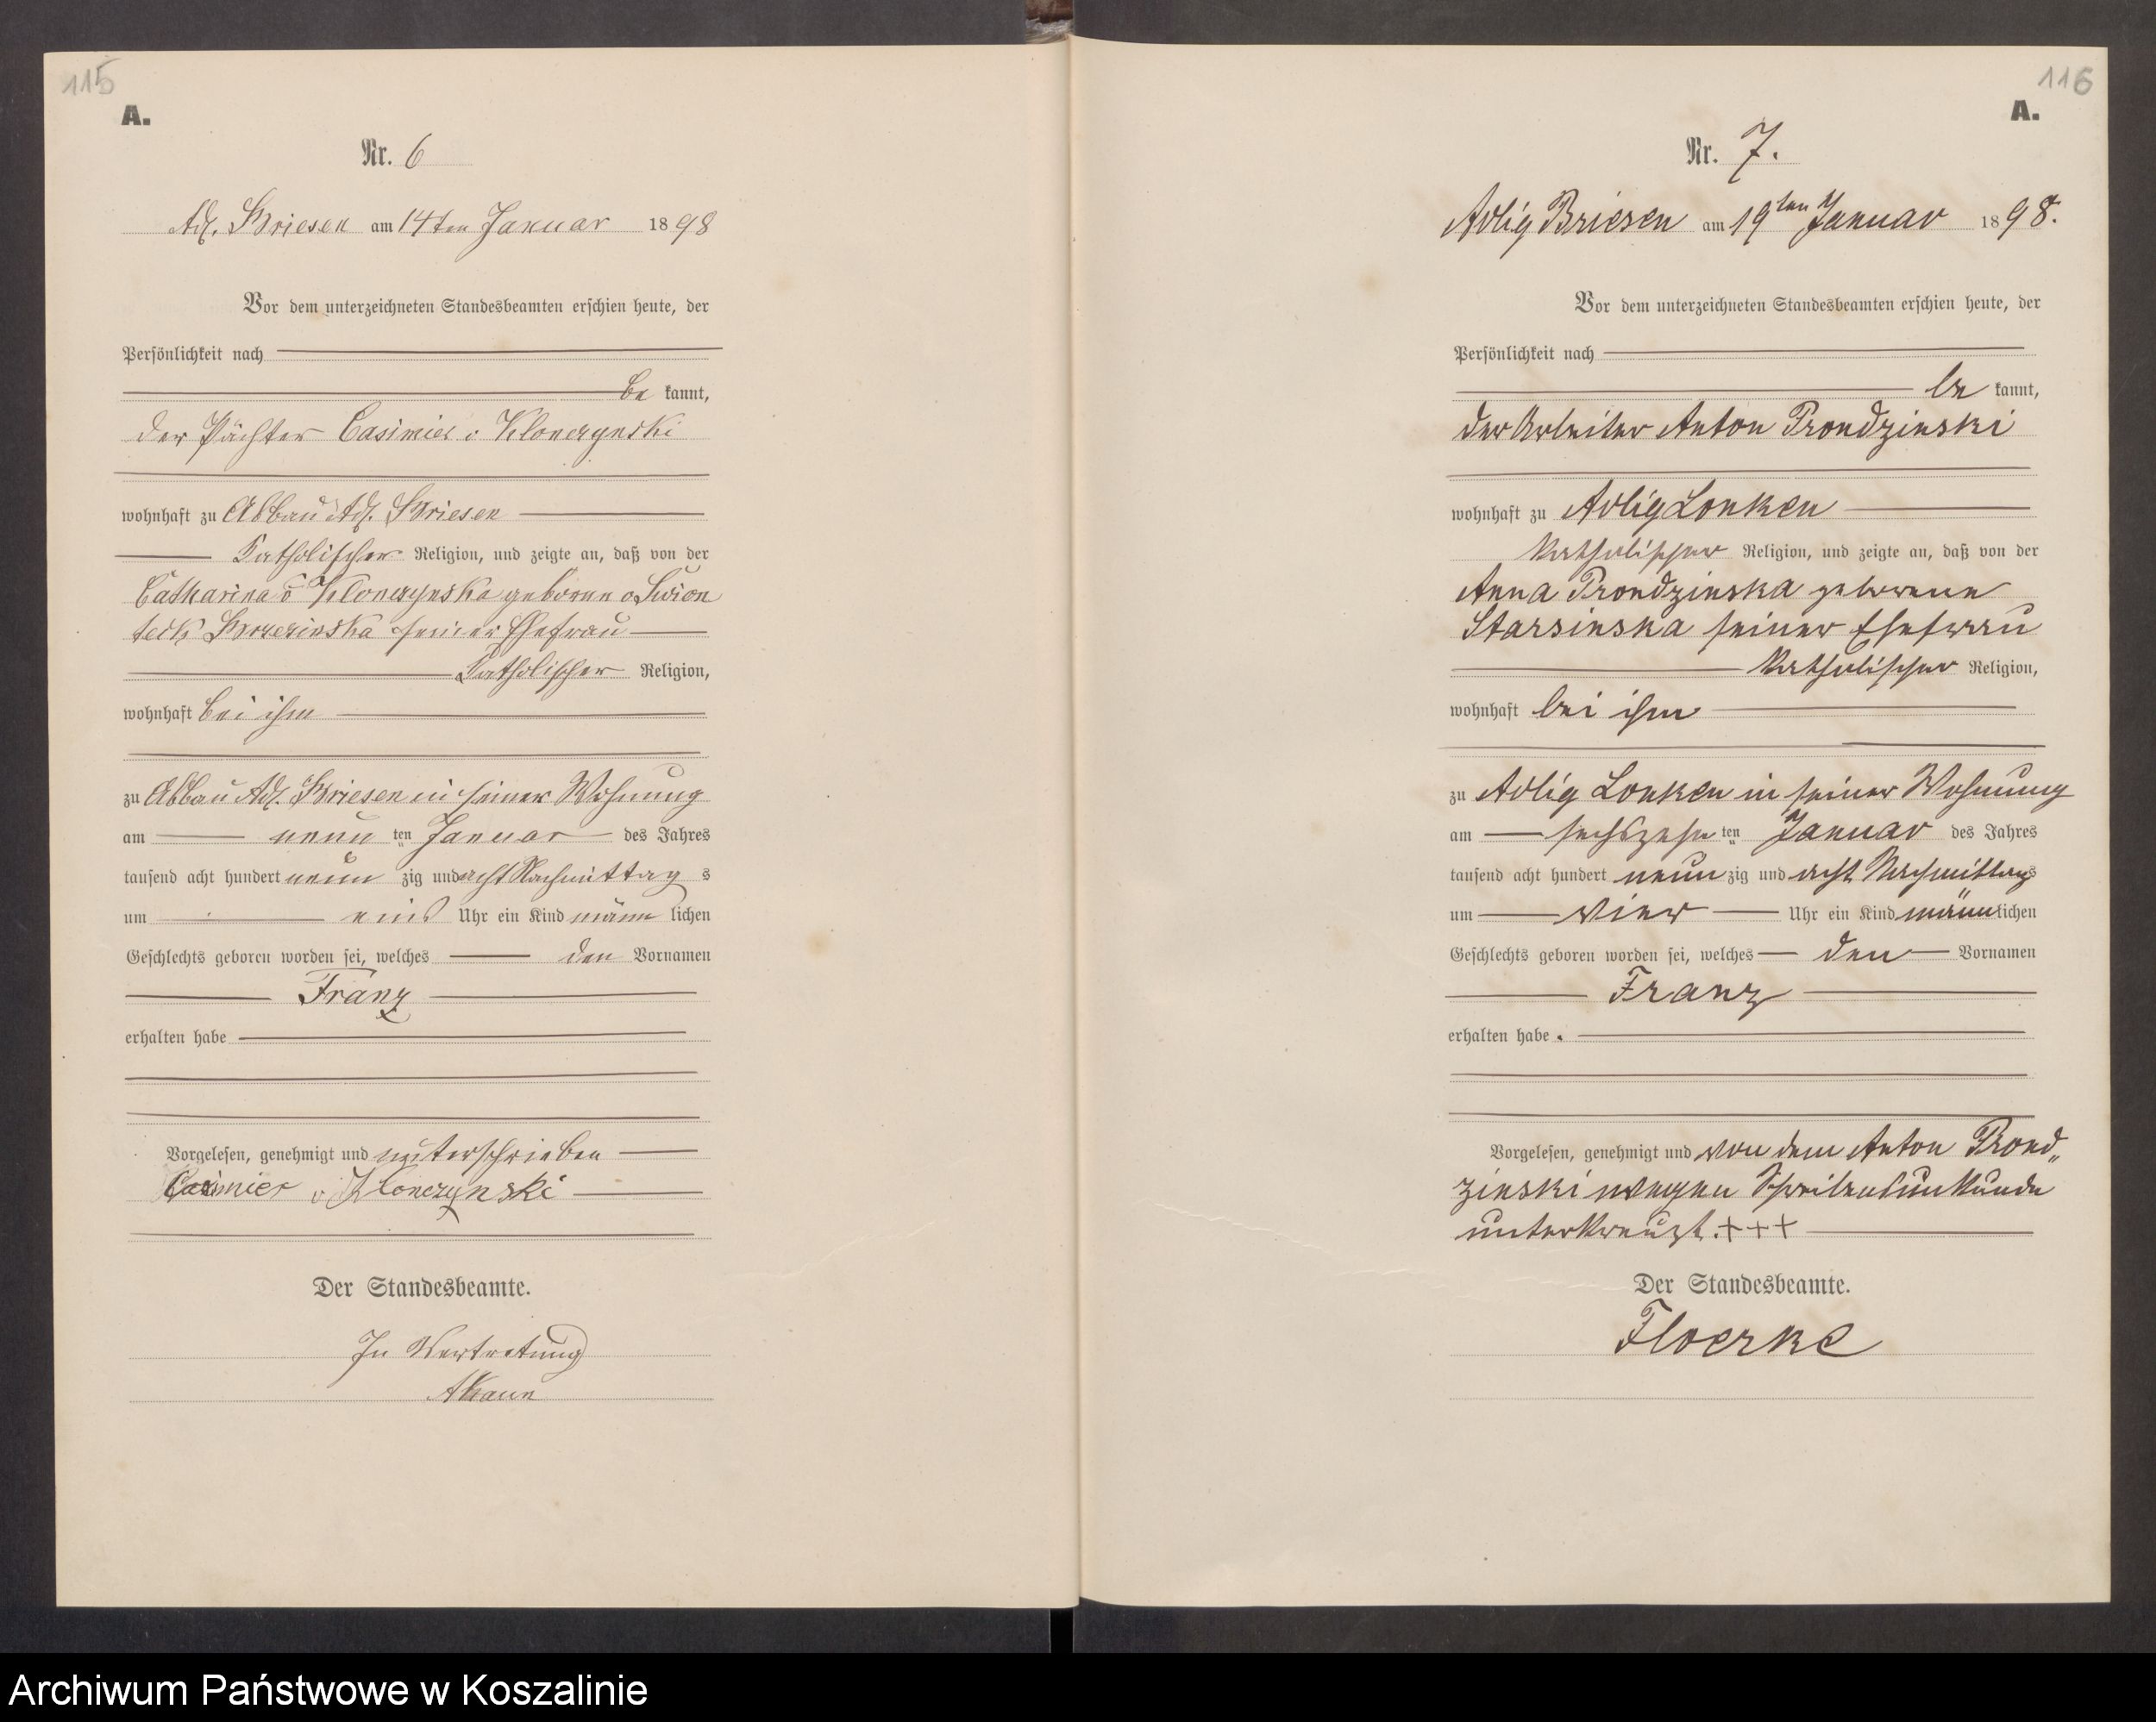 115
A.
Nr. 6
Adl. Briesen am 14ten Januar 1898
Vor dem unterzeichneten Standesbeamten erschien heute, der
Persönlichkeit nach
be kannt,
der Pächter Casimier v Klonczynski
wohnhaft zu Abbau Adl. Briesen
Katholischer Religion, und zeigte an, daß von der
Catharina v Klonczynska geborene v Swion
teck Brzezinska seiner Ehefrau
Katholischer Religion,
wohnhaft bei ihm
zu Abbau Adl. Briesen in seiner Wohnung
am neun ten Januar des Jahres
tausend acht hundert neun zig und acht Nachmittag s
um eins Uhr ein Kind männ lichen
Geschlechts geboren worden sei, welches den Vornamen
Franz
erhalten habe
Vorgelesen, genehmigt und unterschrieben
Casimier v Klonczynski
Der Standesbeamte.
In Vertretung
116
A.
Nr. 7.
Adlig Briesen am 19ten Januar 1898.
Vor dem unterzeichneten Standesbeamten erschien heute, der
Persönlichkeit nach
be kannt,
der Arbeiter Anton Prondzinski
wohnhaft zu Adlig Lonken
katholischer Religion, und zeigte an, daß von der
Anna Prondzinska geborene
Starsinska seiner Ehefrau
katholischer Religion,
wohnhaft bei ihm
zu Adlig Lonken in seiner Wohnung
am sechszehn ten Januar des Jahres
tausend acht hundert neun zig und acht Nachmittags
um vier Uhr ein Kind männlichen
Geschlechts geboren worden sei, welches den Vornamen
Franz
erhalten habe.
Vorgelesen, genehmigt und von dem Anton Prond„
zinski wegen Schreibensunkunde
unterkreuzt. +++
Der Standesbeamte.
Floerke
Archiwum Państwowe w Koszalinie